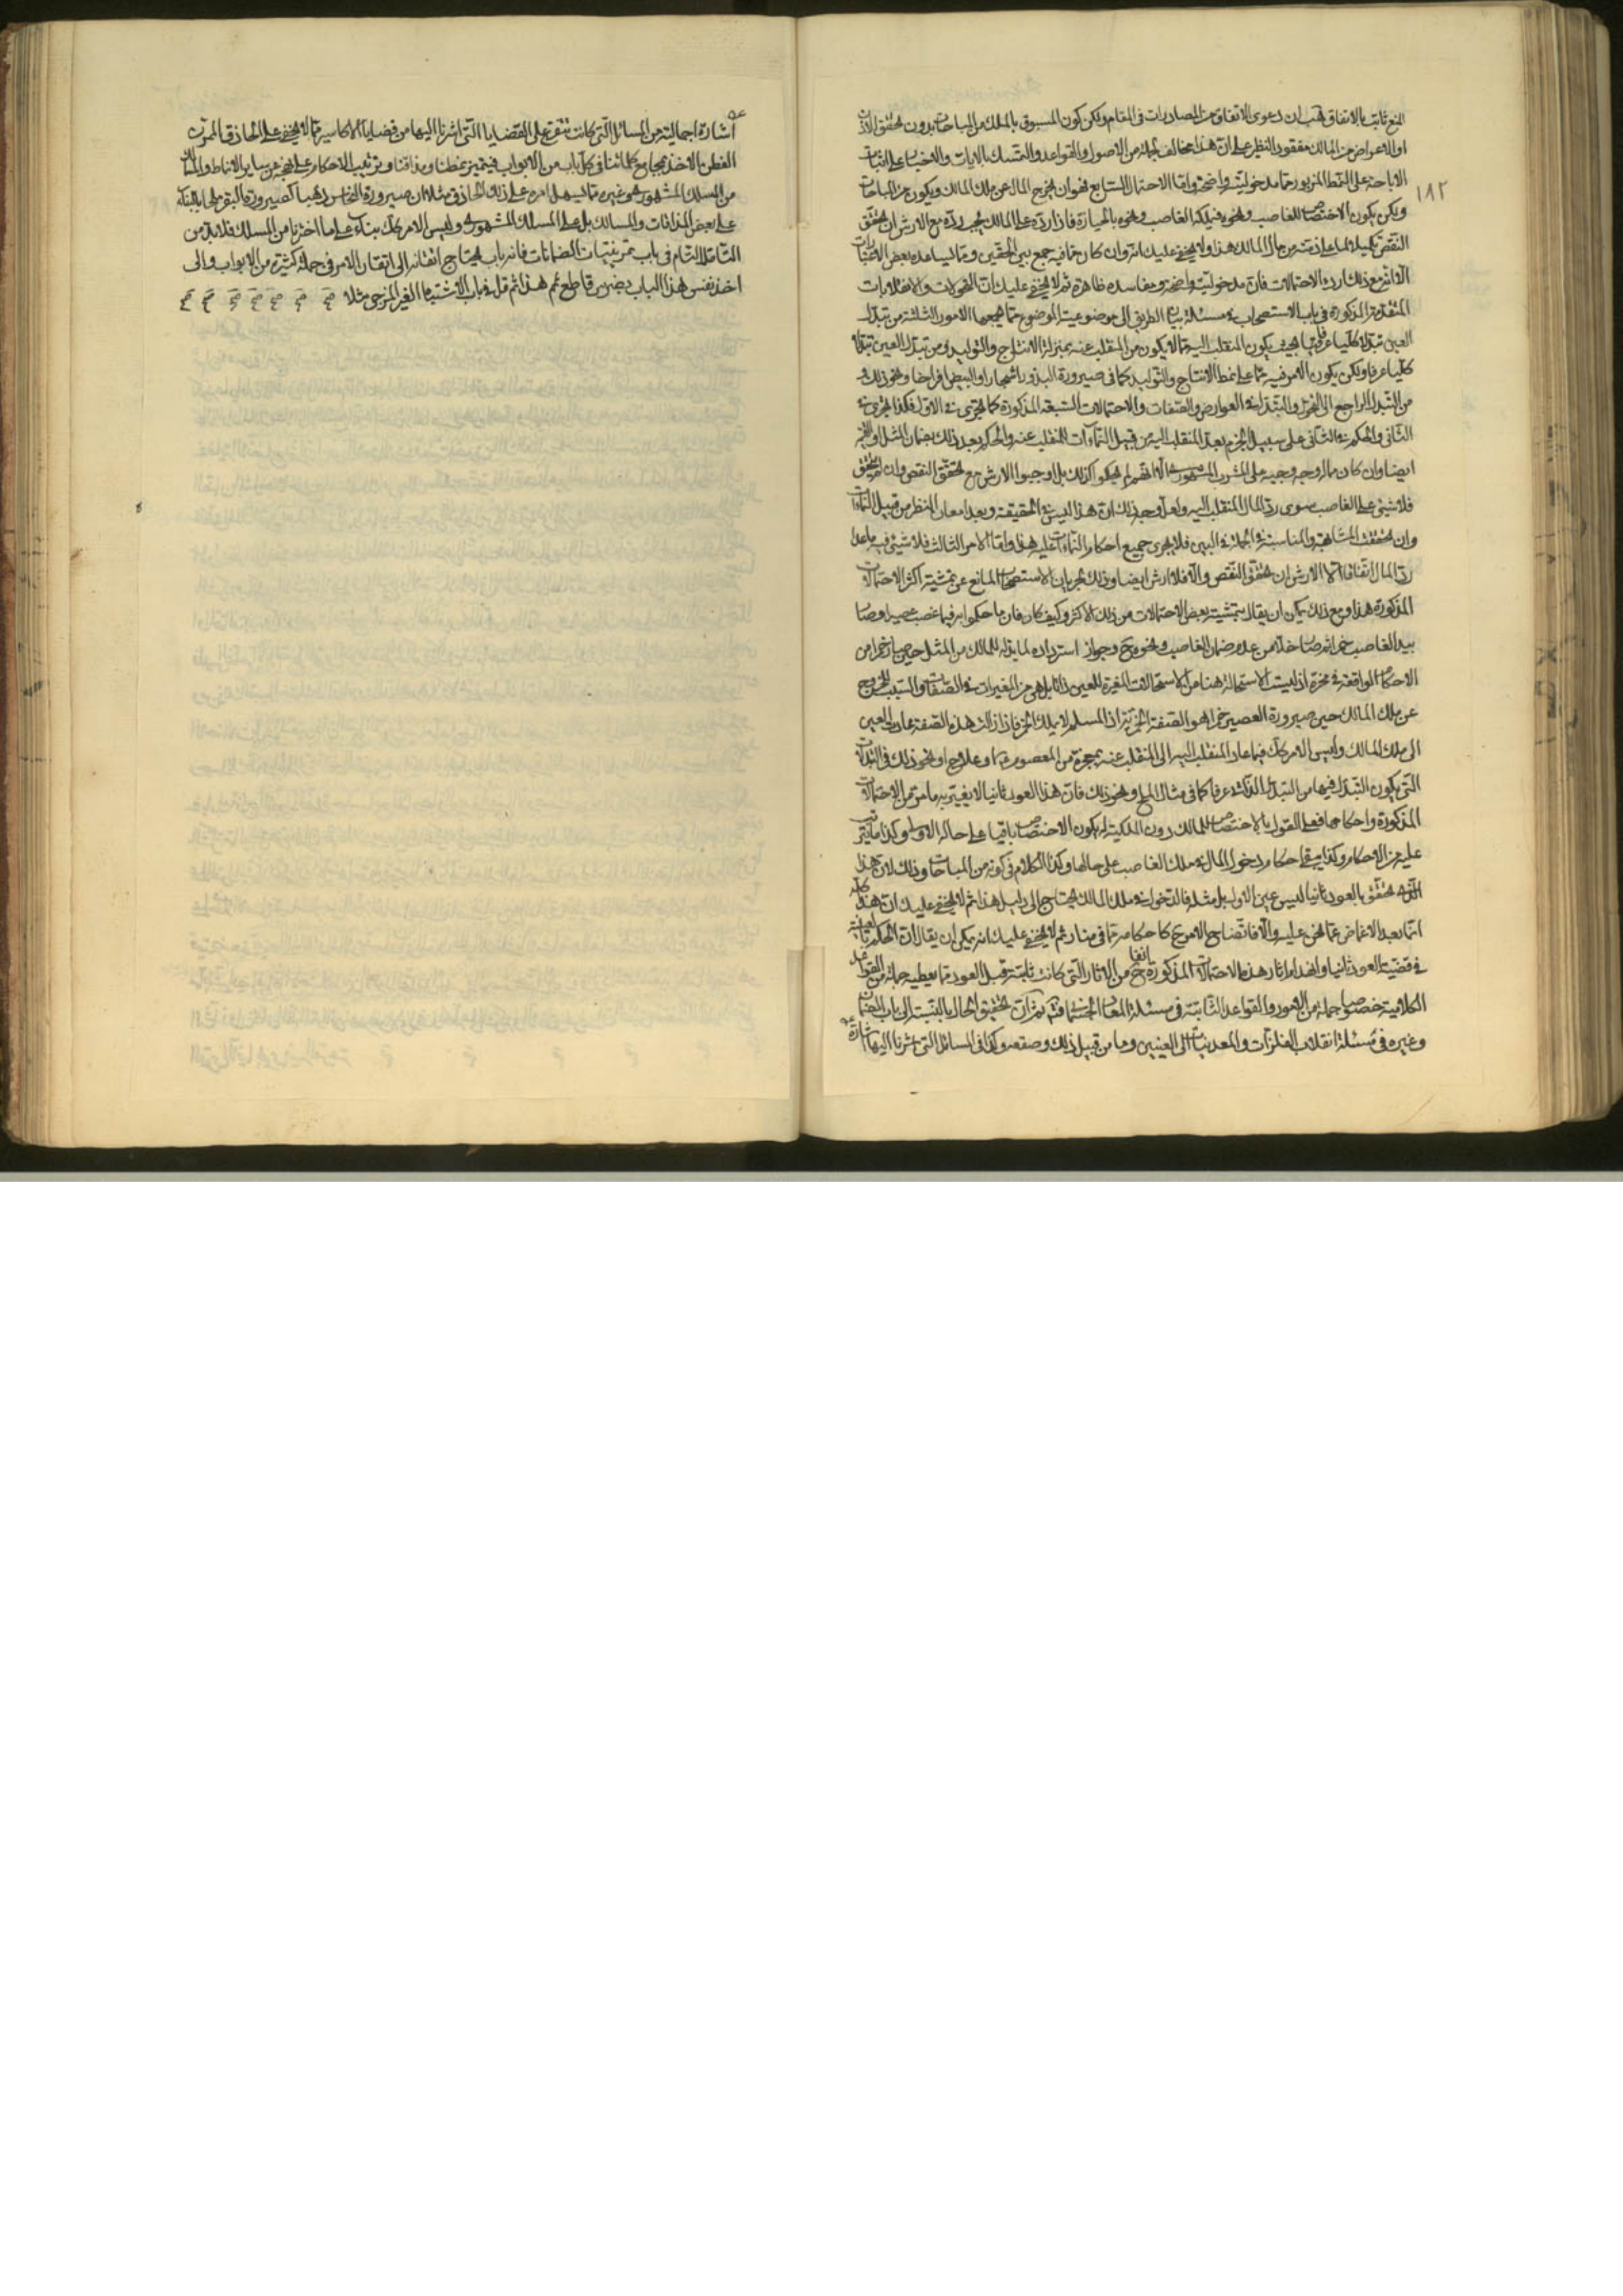 المنع ثابت بالاتفاق فهب ان دعوى الاتفاق من المصادرات فى المقام ولكن كون المسبوق بالملك من المباحات بدون تحقق الاذن
او الاعراض من المالك مفقود النظير على ان هذا مخالف لجملة من الاصول والقواعد والتمسك بالايات والاخبار على اثبات
الاباحة على النمط المزبور مما مدخوليته واضحة واما الاحتمال السابع فهو ان يخرج المال عن ملك المالك ويكون من المباحات
ولكن يكون الاختصاص للغاصب ونحوه فيملكه الغاصب ونحوه بالحيازة فاذا رده على المالك يجب رده مع الارش ان تحقق
النقص تكميلا لما على ذمته من مال المالك هذا ولا يخفى عليك انه وان كان مما فيه جمع بين الحقين ومما يساعده بعض الاعتبارات
الا انه مع ذلك اردء الاحتمالات فان مدخوليته واضحة ومفاسده ظاهرة ثم لا يخفى عليك ان التحولات والانقلابات
المتقدمة المذكورة فى باب الاستصحاب فى مسئلة بيان الطريق الى موضوعية الموضوع مما يجمعها الامور الثلثة من تبدل
العين تبدلا كليا عرفيا بحيث يكون المنقلب اليه مما لا يكون من المنقلب عنه بمنزلة الانتاج والتوليد ومن تبدل العين تبدلا
كليا عرفا ولكن يكون الامر فيه مما على نمط الانتاج والتوليد كما فى صيرورة البذور اشجارا والبيض افراخا ونحو ذلك و
من التبدل الراجع الى التحول والتبدل فى العوارض والصفات والاحتمالات السبعة المذكورة كما تجرى فى الاول فكذا تجرى فى
الثانى والحكم فى الثانى على سبيل الجزم بعد المنقلب اليه من قبيل النماءات للمنقلب عنه والحكم بعد ذلك بضمان المثل او القيمة
ايضا وان كان مما له وجه وجيه على المشرب المشهور الا انهم لم يحكموا كذلك بل اوجبوا الارش مع تحقق النقص وان لم يتحقق
فلا شىء على الغاصب سوى رد المال المنقلب اليه ولعل وجه ذلك ان هذا ليس فى الحقيقة وبعد امعان النظر من قبيل النماءات
وان تحققت المشابهة والمناسبة فى الجملة فى البين فلا يجرى جميع احكام النماءات عليه هذا واما الامر الثالث فلا شىء فيه ما عدا
رد المال اتفاقا الا الارش ان تحقق النقص والا فلا ارش ايضا وذلك لجريان الاستصحاب المانع عن تمشية اكثر الاحتمالات
المذكورة هذا ومع ذلك يمكن ان يقال بتمشية بعض الاحتمالات من ذلك الاكثر وكيف كان فان ما حكموا به فيما غصب عصيرا وصار
بيد الغاصب خمرا ثم صار خلا من عدم ضمان الغاصب ونحوه ح وجواز استرداده لما بذله للمالك من المثل حين صار خمرا من
الاحكام الواقعة فى محزه اذ ليست الاستحالة هنا من الاستحالات المغيرة للعين ذاتا بل هى من المغيرات فى الصفات والسبب للخروج
عن ملك المالك حين صيرورة العصير خمرا هو الصفة الخمرية اذ المسلم لا يملك الخمر فاذا زالت هذه الصفة عاد العين
الى ملك المالك وليس الامر كك فيما عاد المنقلب اليه الى المنقلب عنه بمعجزة من المعصوم ع او علاج او نحو ذلك فى التبدلات
التى يكون التبدل فيها من التبدل الذاتى عرفا كما فى مثال الملح ونحو ذلك فان هذا العود ثانيا لا يغير به ما مر من الاحتمالات
المذكورة واحكامها فعلى القول بالاختصاص للمالك دون الملكية له يكون الاختصاص باقيا على حاله الاول وكذا ما يترتب
عليه من الاحكام وكذا يبقى احكام دخول المال فى ملك الغاصب على حالها وكذا الكلام فى كونه من المباحات وذلك لان هذا
الذى تحقق بالعود ثانيا ليس عين الاول بل مثله فالدخول فى ملك المالك يحتاج الى دليل هذا ثم لا يخفى عليك ان هذا كله
انما بعد الاغماض عما نحن عليه والا فاتضاح الامر ح كاحكامه مما فى منار ثم لا يخفى عليك انه يمكن ان يقال ان الحكم
فى قضية العود ثانيا وانهدام اثار هذه الاحتمالات المذكورة ح من الاثار التى كانت ثابتة قبل العود مما يعطيه جملة من القواعد
الكلامية خصوصا جملة من الامور والقواعد الثابتة فى مسئلة المعاد الجسمانى ثم ان تحقيق الحال بالنسبة الى باب الضمان
وغيره فى مسئلة انقلاب الفلزات والمعدنيات الى العينين وما من قبيل ذلك وصقعه وكذا فى المسائل التى اشرنا اليها اشارة
١٨٢
اشارة اجمالية من المسائل التى كانت تتفرع على القضايا التى اشرنا اليها من قضايا الاكاسير مما لا يخفى على الحاذق المرتن
الفطن الاخذ بمجامع كلماتنا فى كل باب من الابواب فيتميز نمطنا ومذاقنا وترتيب الاحكام على نهجه عن ساير الانماط والمسالك
من المسلك المشهورى وغيره مما يسهل امره على ذلك الحاذق مثلا ان صيرورة النحاس ذهبا كصيرورة البقر ملحا بالبناء
على بعض المذاقات والمسالك بل على المسلك المشهورى وليس الامر كك بناء على ما اخترنا من المسلك فلا بد من
التامل التام فى باب تمرينيات الضمانات فانه باب يحتاج اتقانه الى اتقان الامر فى جملة كثيرة من الابواب والى
اخذ نفس هذا الباب بضرس قاطع ثم هذا ثم قل فى باب الاشتباه الغير المزجى مثلا